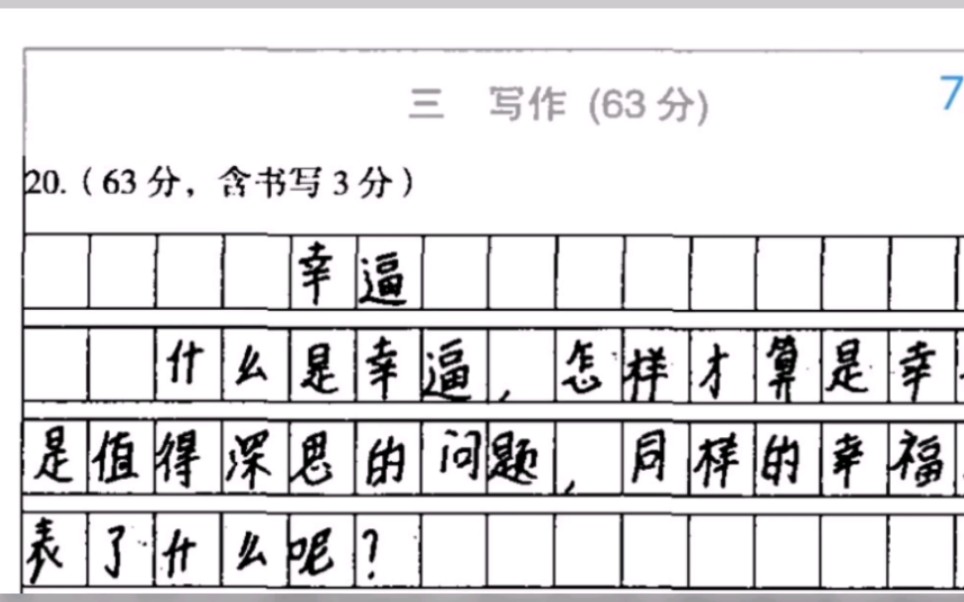 三 写作 (63 分)
7
20.(63 分，含书写 3 分)
幸逼
什么是幸逼，怎样才算是幸
是值得深思的问题，同样的幸福
表了什么呢？